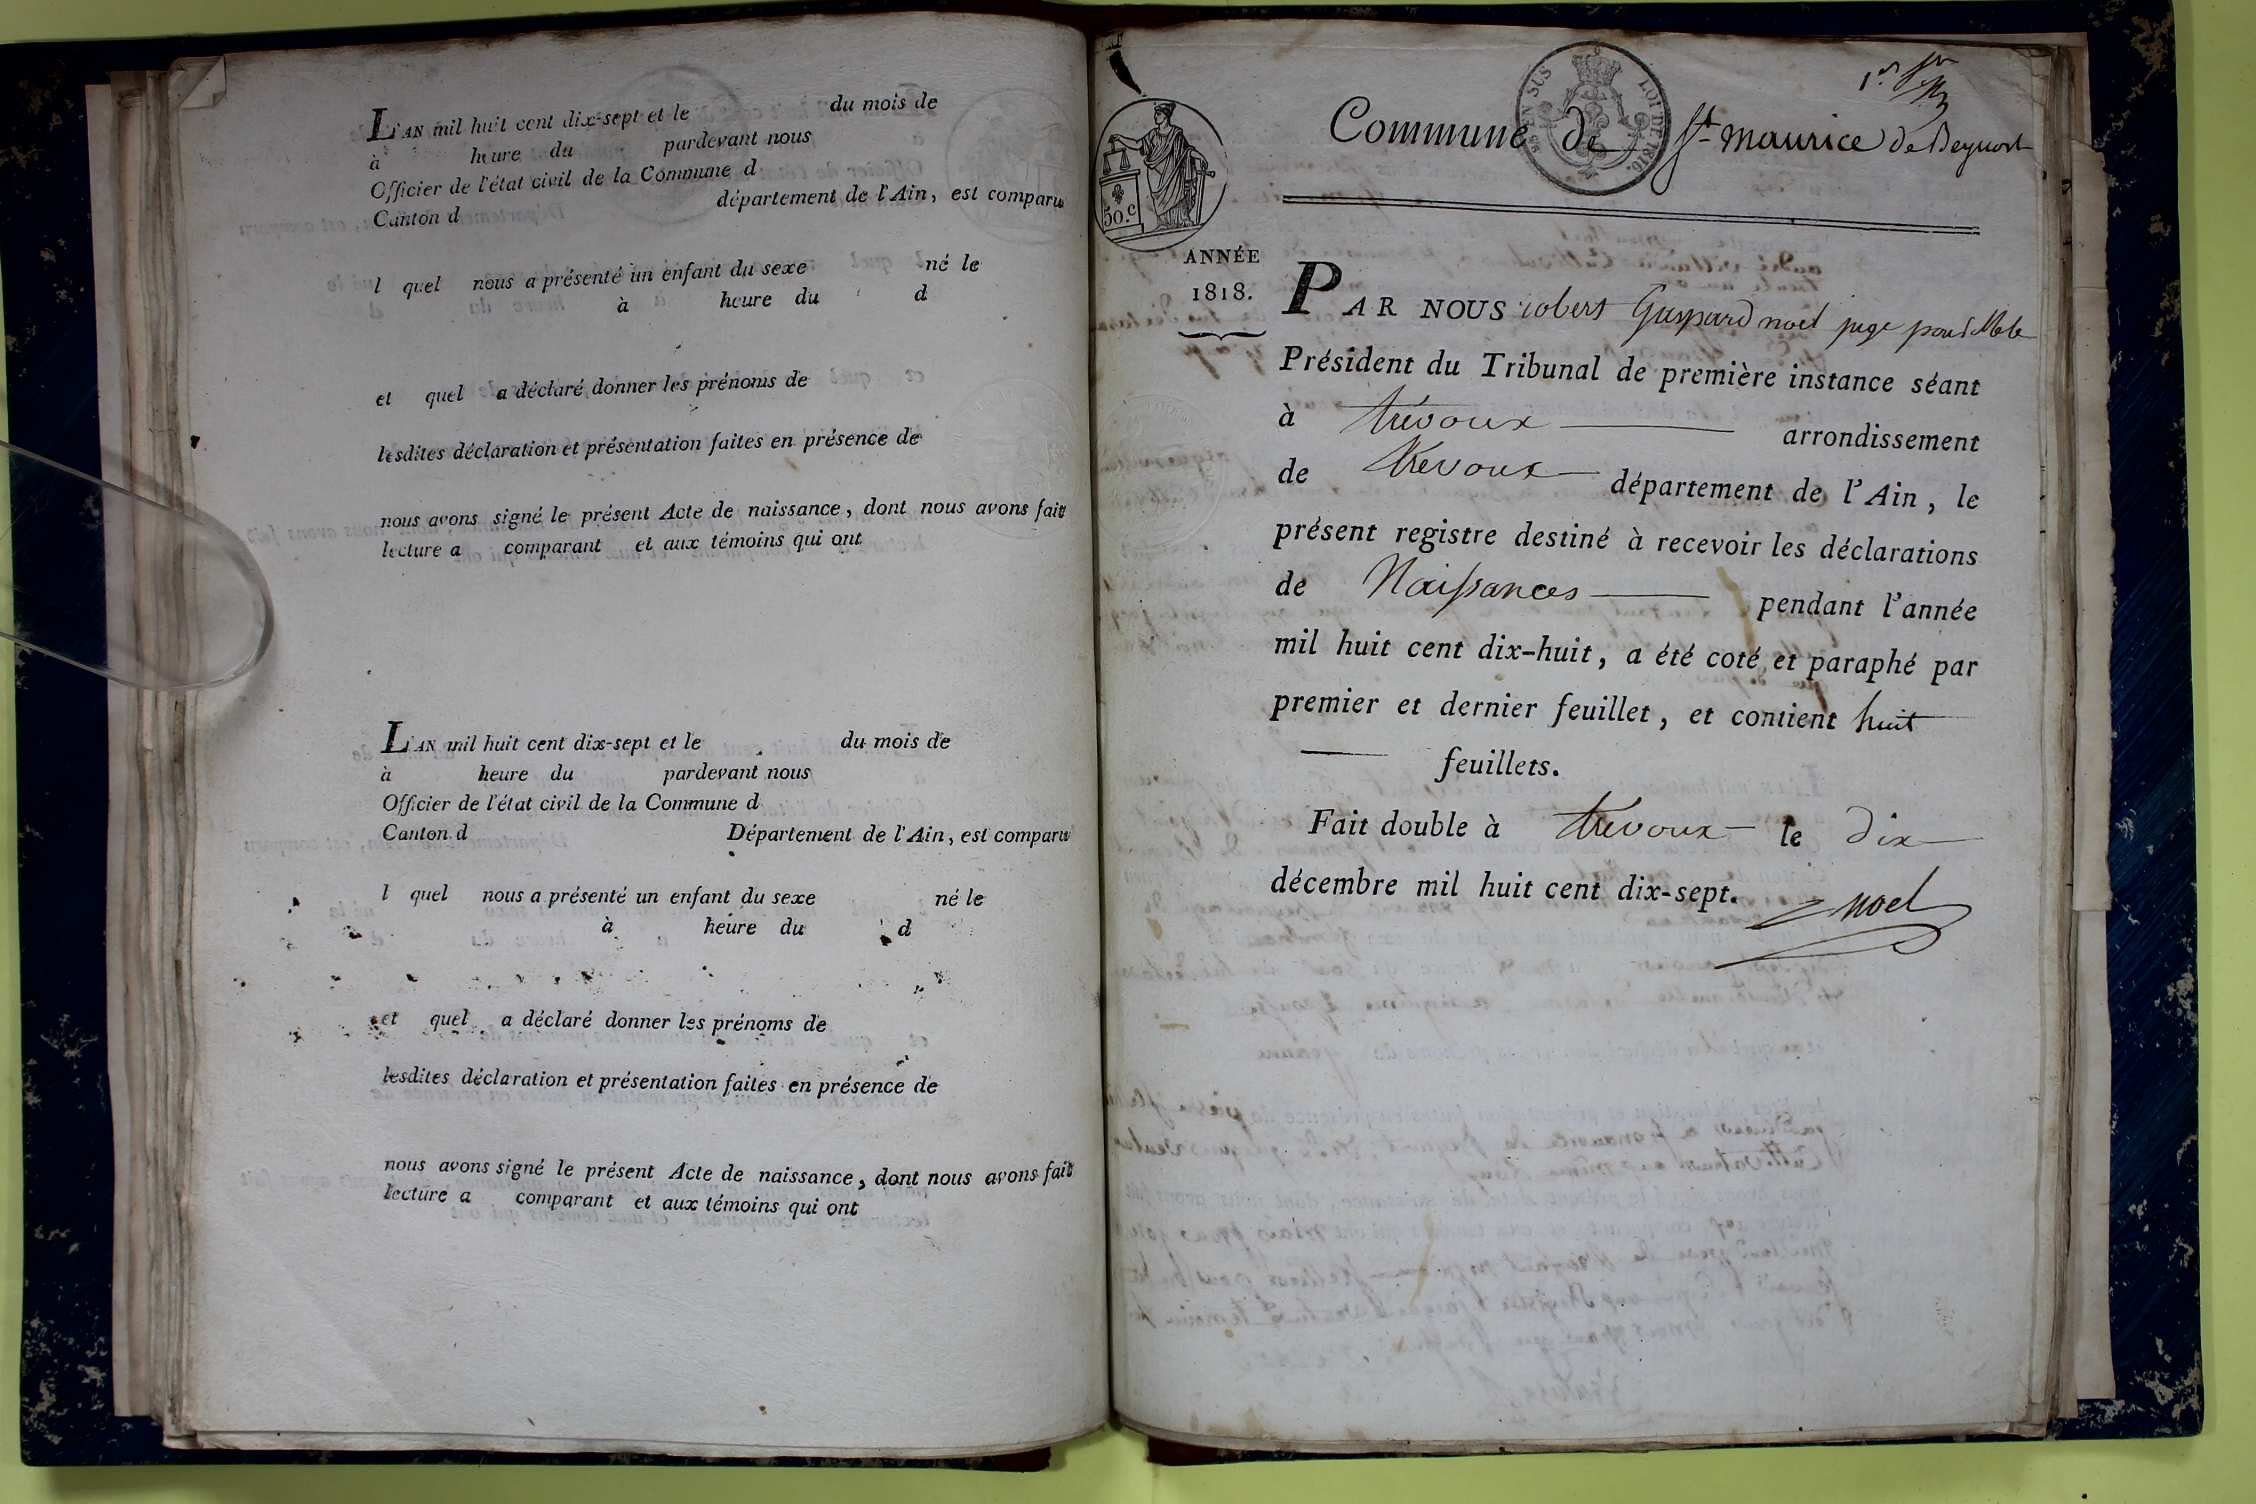 L'AN mil huit cent dix-sept et le du mois de
à heure du pardevant nous
Officier de l'état civil de la Commune d
Canton d département de l'Ain, est comparu
l quel nous a présenté un enfant du sexe né le
à heure du d
et quel a déclaré donner les prénoms de
lesdites déclaration et présentation faites en présence de
nous avons signé le présent Acte de naissance, dont nous avons fait
lecture a comparant et aux témoins qui ont
L'AN mil huit cent dix-sept et le du mois de
à heure du pardevant nous
Officier de l'état civil de la Commune d
Canton d Département de l'Ain, est comparu
l quel nous a présenté un enfant du sexe né le
à heure du d
et quel a déclaré donner les prénoms de
lesdites déclaration et présentation faites en présence de
nous avons signé le présent Acte de naissance, dont nous avons fait
lecture a comparant et aux témoins qui ont
50.c
LOI DE 1816
Commune de St maurice de Beynost
ANNÉE
1818.
PAR NOUS robert Gaspard noel juge pour
Président du Tribunal de première instance séant
à trévoux arrondissement
de trevoux département de l'Ain, le
présent registre destiné à recevoir les déclarations
de Naissances pendant l'année
mil huit cent dix-huit, a été coté et paraphé par
premier et dernier feuillet, et contient huit
feuillets.
Fait double à trevoux le dix
décembre mil huit cent dix-sept.
noel